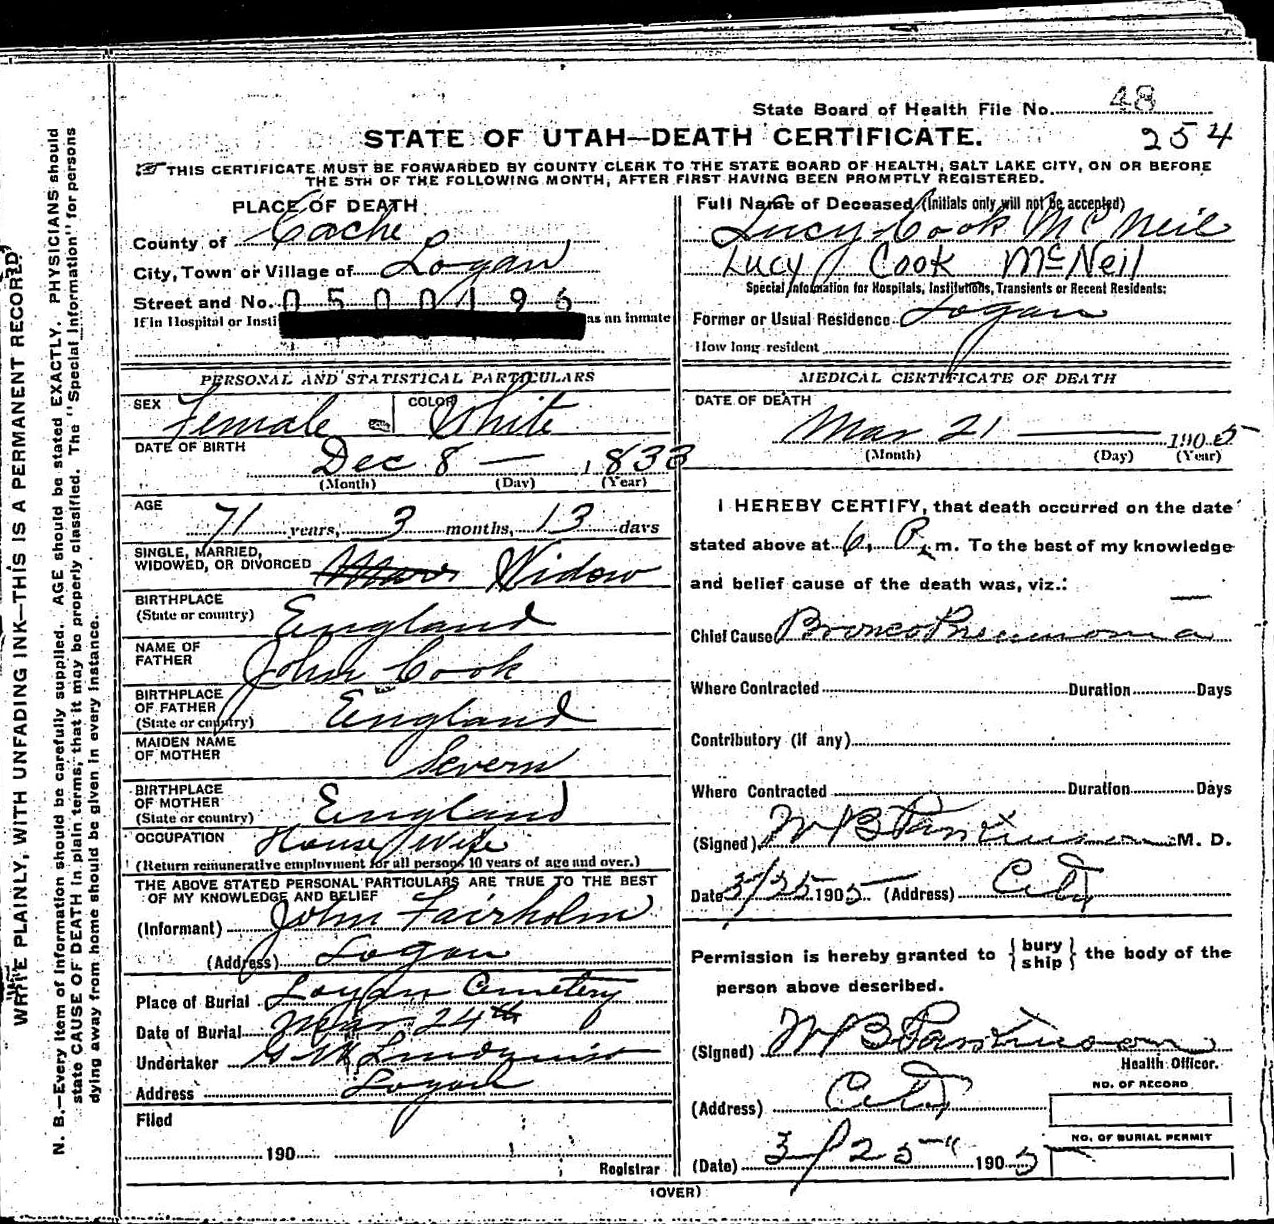 State Board of Health File No. 48
254
STATE OF UTAH—DEATH CERTIFICATE.
THIS CERTIFICATE MUST BE FORWARDED BY COUNTY CLERK TO THE STATE BOARD OF HEALTH, SALT LAKE CITY, ON OR BEFORE
THE 5TH OF THE FOLLOWING MONTH, AFTER FIRST HAVING BEEN PROMPTLY REGISTERED.
WRITE PLAINLY, WITH UNFADING INK—THIS IS A PERMANENT RECORD.
N. B.—Every item of Information should be carefully supplied. AGE should be stated EXACTLY. PHYSICIANS should
state CAUSE OF DEATH in plain terms, that it may be properly classified. The "Special Information" for persons
dying away from home should be given in every instance.
PLACE OF DEATH
County of Cache
City, Town or Village of Logan
Street and No. 0500196
If in Hospital or Insti as an inmate
PERSONAL AND STATISTICAL PARTICULARS
SEX Female COLOR White
DATE OF BIRTH
Dec 8 — 1833
(Month) (Day) (Year)
AGE
71 years, 3 months, 13 days
SINGLE, MARRIED,
WIDOWED, OR DIVORCED Marr Widow
BIRTHPLACE
(State or country) England
NAME OF
FATHER John Cook
BIRTHPLACE
OF FATHER
(State or country) England
MAIDEN NAME
OF MOTHER Severn
BIRTHPLACE
OF MOTHER
(State or country) England
OCCUPATION House Wife
(Return remunerative employment for all persons 10 years of age and over.)
THE ABOVE STATED PERSONAL PARTICULARS ARE TRUE TO THE BEST
OF MY KNOWLEDGE AND BELIEF
(Informant) John Fairholm
(Address) Logan
Place of Burial Logan Cemetery
Date of Burial Mar 24th
Undertaker Lundquist
Address Logan
Filed
190
Registrar
Full Name of Deceased (Initials only will not be accepted)
Lucy Cook McNeil
Lucy Cook McNeil
Special Information for Hospitals, Institutions, Transients or Recent Residents:
Former or Usual Residence Logan
How long resident
MEDICAL CERTIFICATE OF DEATH
DATE OF DEATH
Mar 21 — 1905
(Month) (Day) (Year)
I HEREBY CERTIFY, that death occurred on the date
stated above at 6 P. m. To the best of my knowledge
and belief cause of the death was, viz.:
Chief Cause Bronco Pneumonia
Where Contracted Duration Days
Contributory (if any)
Where Contracted Duration Days
(Signed) W B Parkinson M. D.
Date 3/25 1905 (Address) City
Permission is hereby granted to { bury ship } the body of the
person above described.
(Signed) W B Parkinson
Health Officer.
(Address) City
NO. OF RECORD
NO. OF BURIAL PERMIT
(Date) 3/25 1905
(OVER)